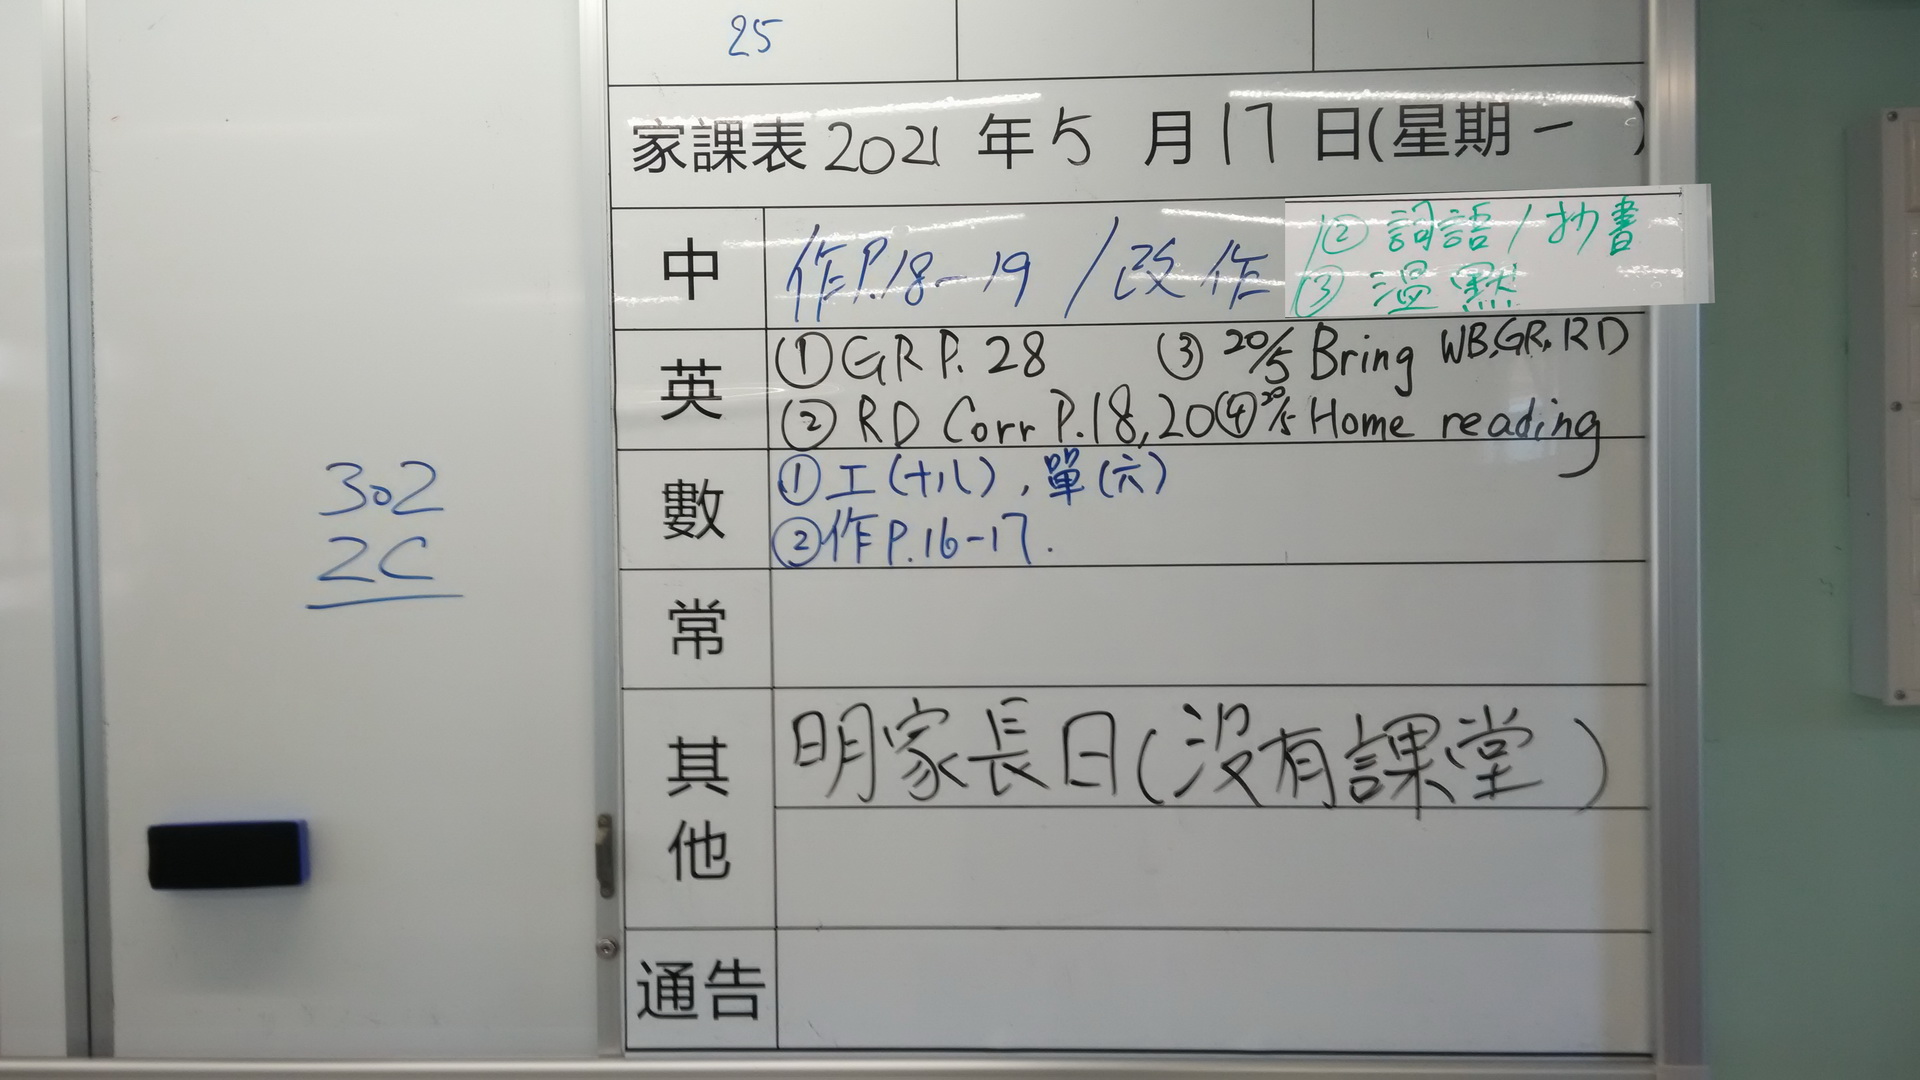 25
家課表 2021 年 5 月 17 日(星期一)
中 作P.18-19 / 改作 / ② 詞語 / 抄書
③ 溫默
英 ① GR P. 28 ③ 20/5 Bring WB, GR, RD
② RD Corr P.18, 20 ④ 20/5 Home reading
數 ① 工(十八), 單(六)
② 作 P.16-17.
常
其他 明家長日(沒有課堂)
通告
302
2C